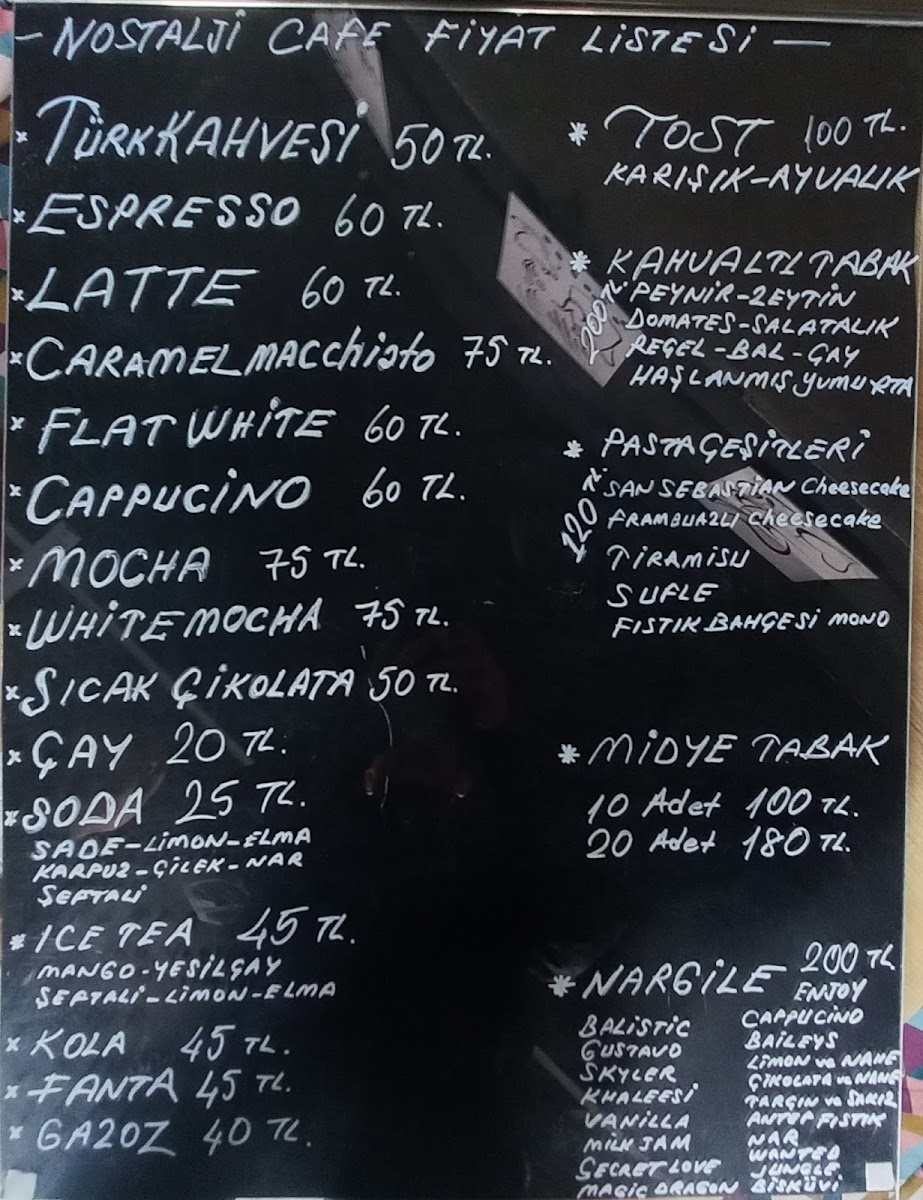 - NOSTALJİ CAFE FİYAT LİSTESİ -
* TÜRK KAHVESİ 50 TL.
* ESPRESSO 60 TL.
* LATTE 60 TL.
* CARAMEL MACCHiato 75 TL.
* FLAT WHİTE 60 TL.
* CAPPUCİNO 60 TL.
* MOCHA 75 TL.
* WHİTE MOCHA 75 TL.
* SICAK ÇİKOLATA 50 TL.
* ÇAY 20 TL.
* SODA 25 TL.
SADE-LİMON-ELMA
KARPUZ-ÇİLEK-NAR
ŞEFTALİ
* ICE TEA 45 TL.
MANGO-YEŞİLÇAY
ŞEFTALİ-LİMON-ELMA
* KOLA 45 TL.
* FANTA 45 TL.
* GAZOZ 40 TL.
* TOST 100 TL.
KARIŞIK-AYVALIK
* KAHVALTI TABAK
200 TL
PEYNİR-ZEYTİN
DOMATES-SALATALIK
REÇEL-BAL-ÇAY
HAŞLANMIŞ YUMURTA
* PASTA ÇEŞİTLERİ
120 TL
SAN SEBASTİAN Cheesecake
FRAMBUAZLI Cheesecake
TİRAMİSU
SUFLE
FISTIK BAHÇESİ MONO
* MİDYE TABAK
10 Adet 100 TL.
20 Adet 180 TL.
* NARGİLE 200 TL
BALİSTİC
GUSTAVO
SKYLER
KHALEESİ
VANİLLA
MİLK JAM
SECRET LOVE
MAGİC DRAGON
ENJOY
CAPPUCİNO
BAİLEYS
LİMON ve NANE
ÇİKOLATA ve NANE
TARÇIN ve SAKIZ
ANTEP FISTIK
NAR
WANTED
JUNGLE
BİSKÜVİ